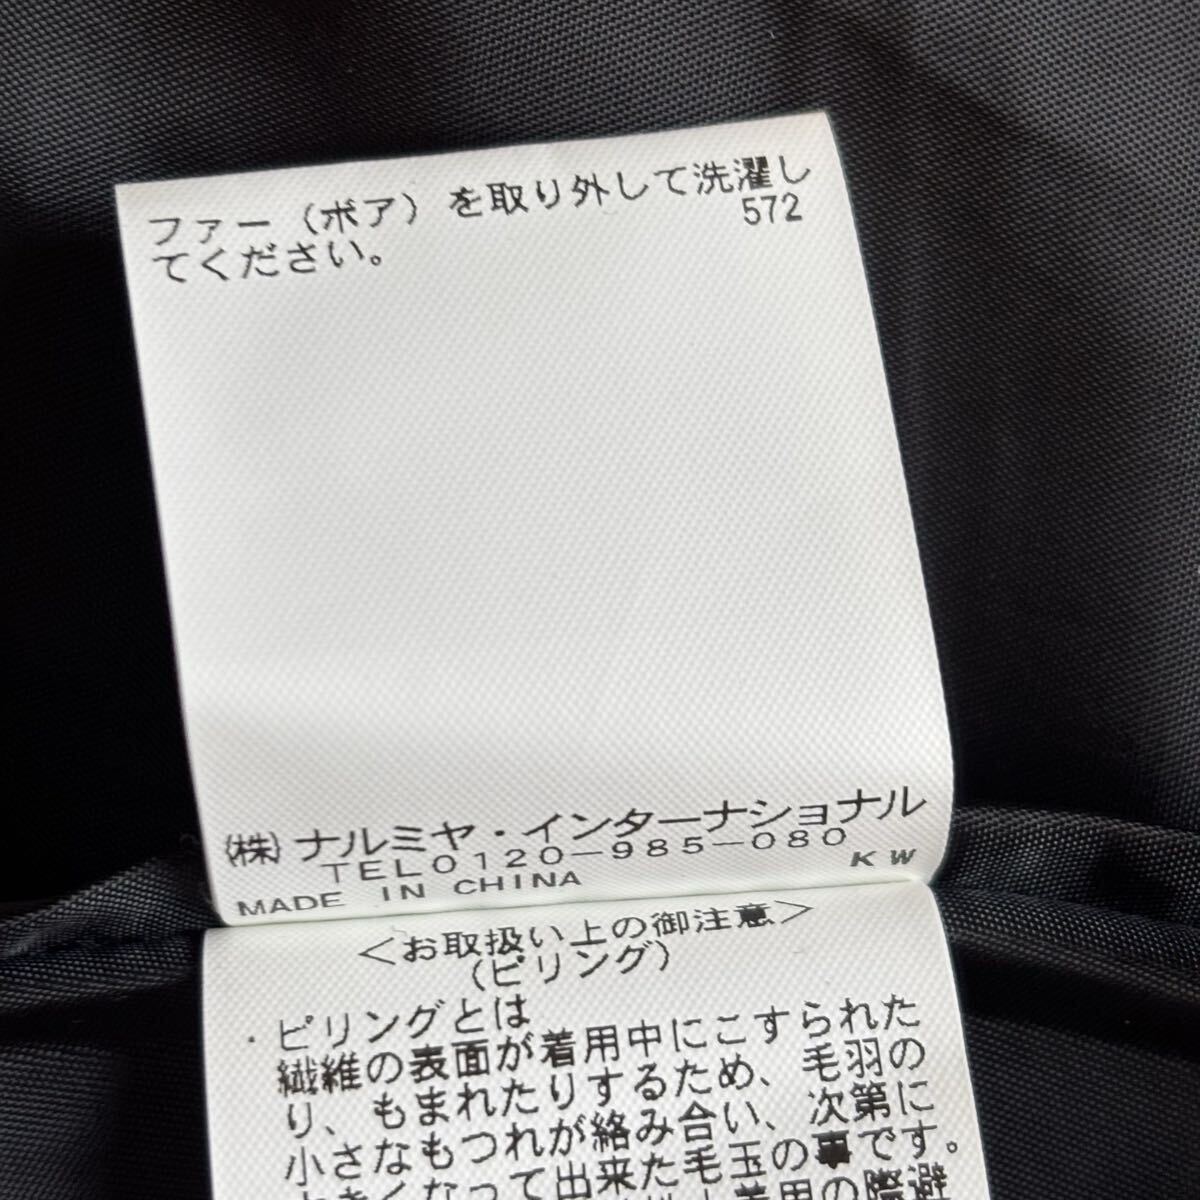 ファー（ボア）を取り外して洗濯し
てください。
572
(株)ナルミヤ・インターナショナル
TEL0120-985-080
MADE IN CHINA
KW
＜お取扱い上の御注意＞
（ピリング）
・ピリングとは
繊維の表面が着用中にこすられた
り、もまれたりするため、毛羽の
小さなもつれが絡み合い、次第に
大きくなって出来た毛玉の事です。
着用の際避